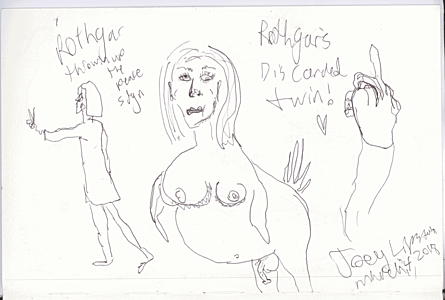 'Rothgar
throwing up
the
peace
sign
Rothgar's
Discarded
twin!
Joey
2018